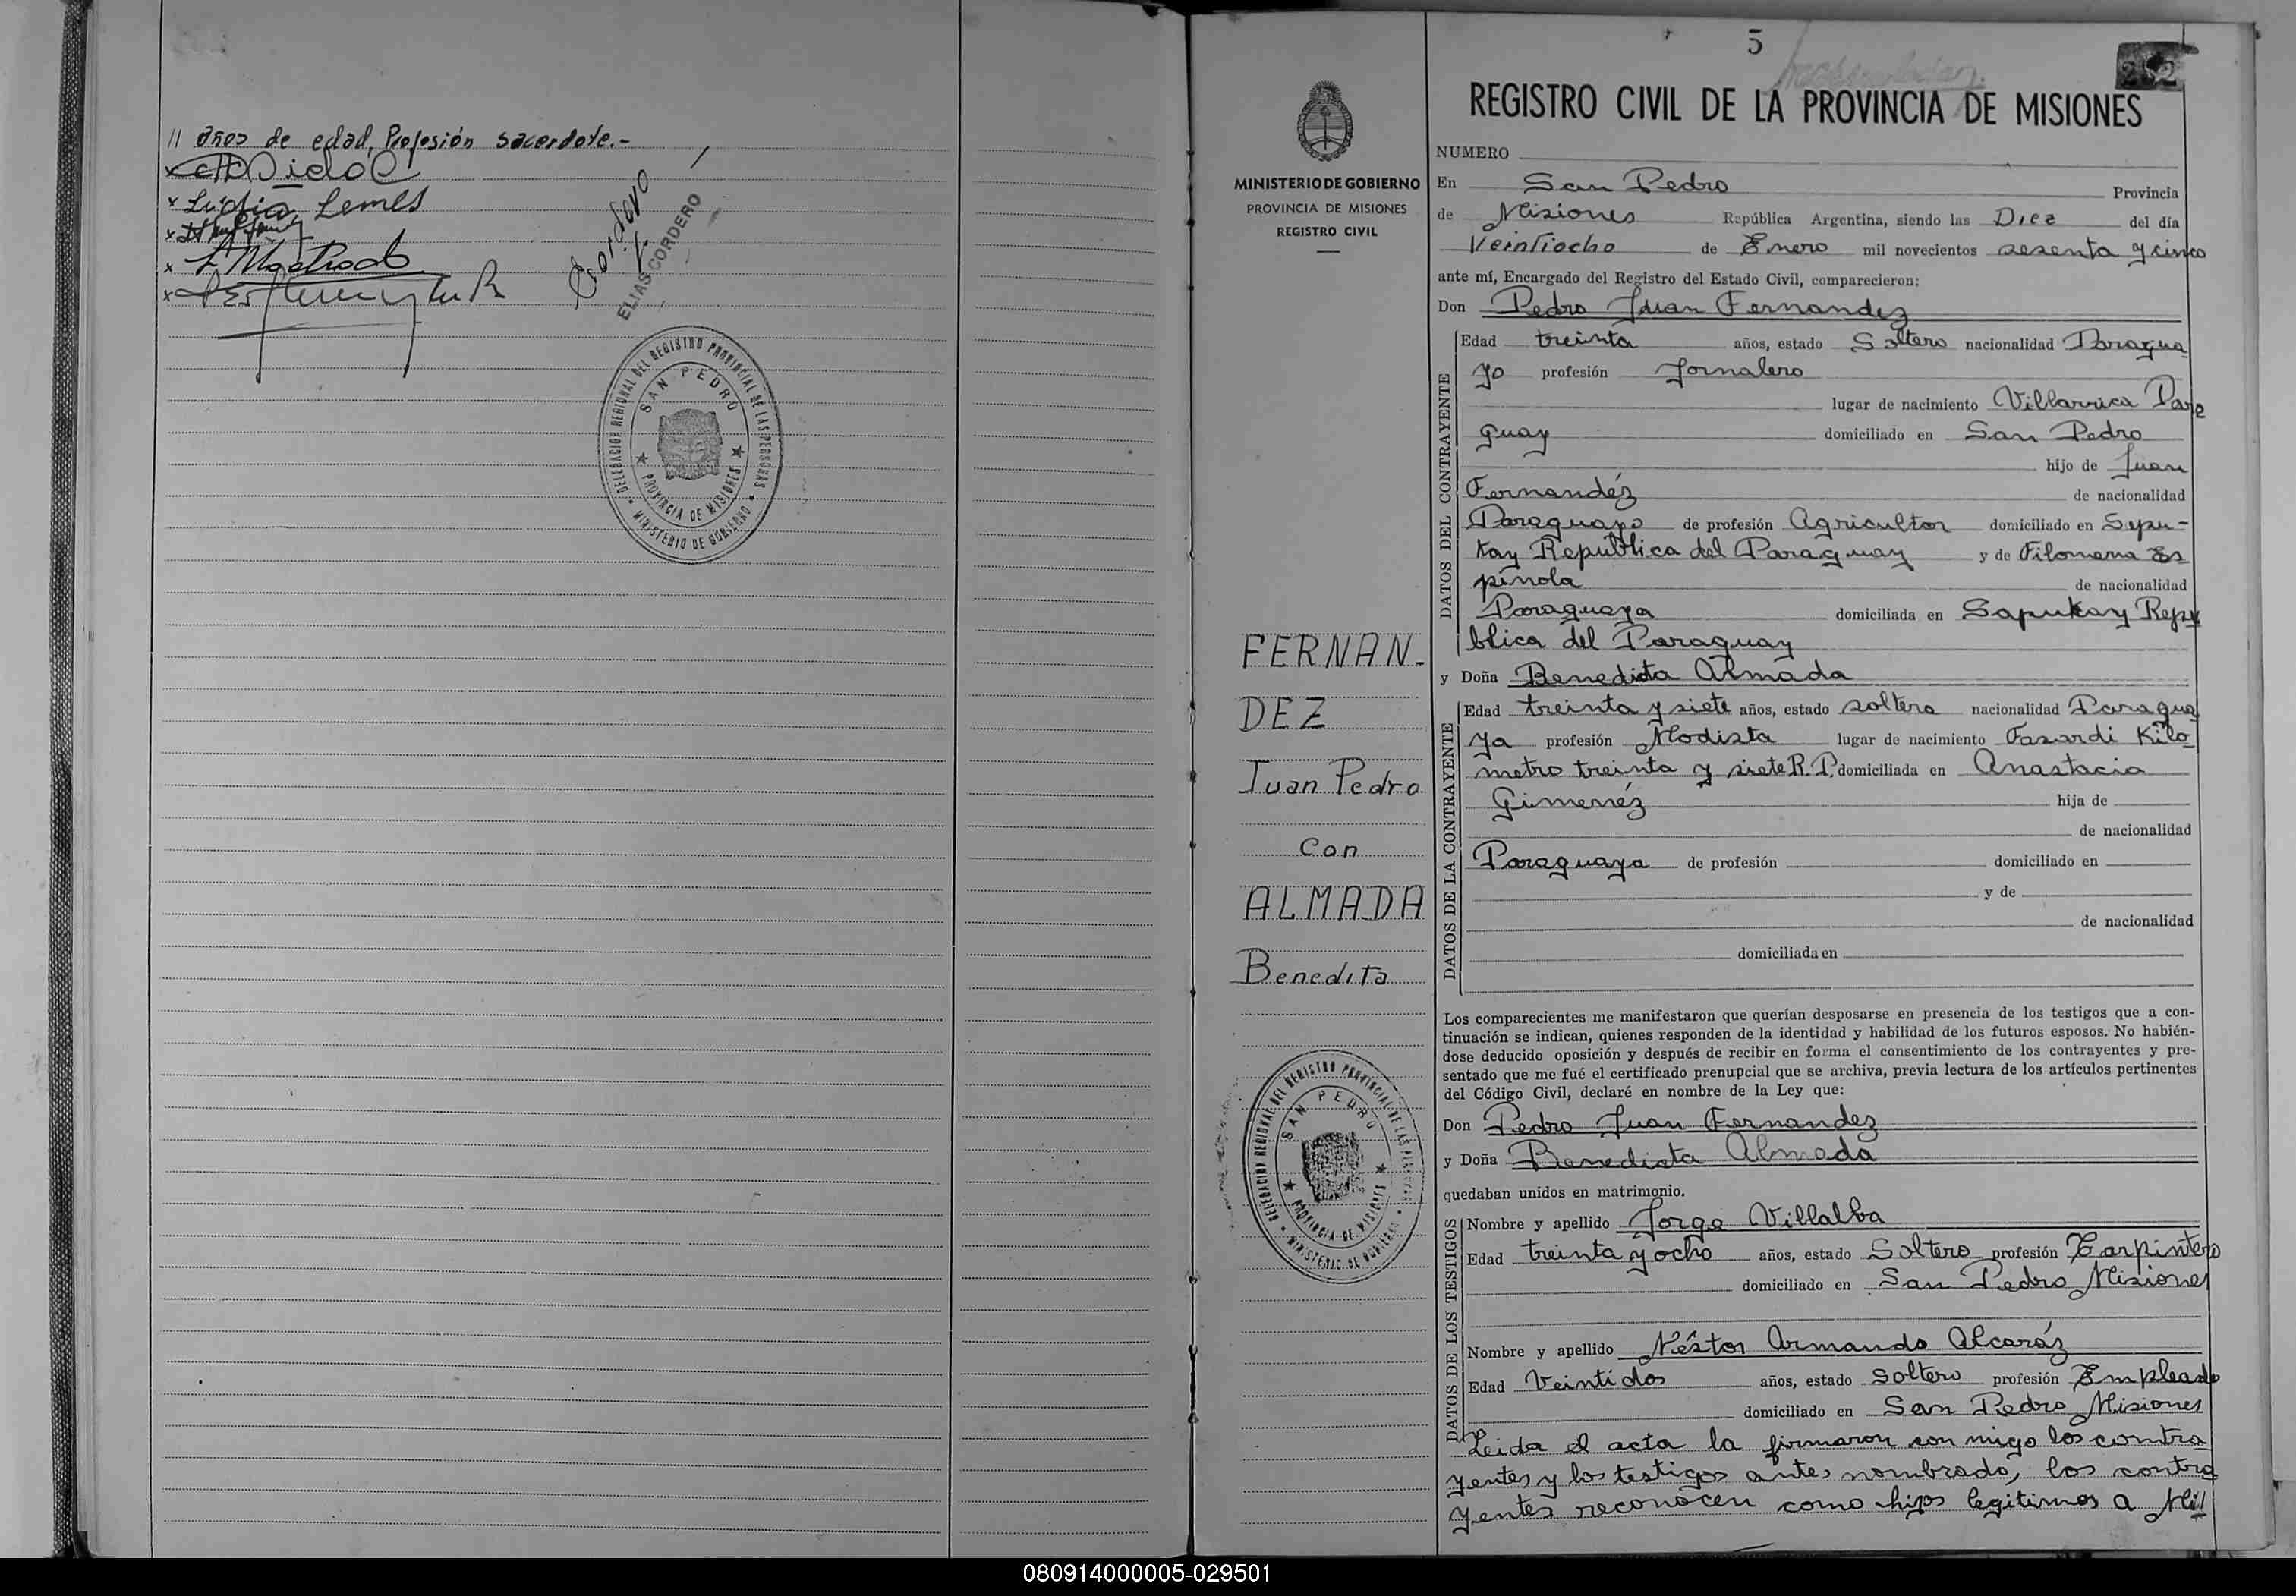 11 años de edad, Profesión sacerdote.-
x Lidia Lemes
ELIAS CORDERO
DELEGACION REGIONAL DEL REGISTRO PROVINCIAL DE LAS PERSONAS
SAN PEDRO
PROVINCIA DE MISIONES
MINISTERIO DE GOBIERNO
5
202
MINISTERIO DE GOBIERNO
PROVINCIA DE MISIONES
REGISTRO CIVIL
FERNAN-
DEZ
Juan Pedro
con
ALMADA
Benedita
DELEGACION REGIONAL DEL REGISTRO PROVINCIAL DE LAS PERSONAS
SAN PEDRO
PROVINCIA DE MISIONES
MINISTERIO DE GOBIERNO
REGISTRO CIVIL DE LA PROVINCIA DE MISIONES
NUMERO
En San Pedro Provincia
de Misiones República Argentina, siendo las Diez del día
Veintiocho de Enero mil novecientos sesenta y cinco
ante mí, Encargado del Registro del Estado Civil, comparecieron:
Don Pedro Juan Fernandez
DATOS DEL CONTRAYENTE
Edad treinta años, estado Soltero nacionalidad Paragua
yo profesión Jornalero
lugar de nacimiento Villarrica Para
guay domiciliado en San Pedro
hijo de Juan
Fernandéz de nacionalidad
Paraguayo de profesión Agricultor domiciliado en Sepu-
kay Republica del Paraguay y de Filomena Es
pinola de nacionalidad
Paraguaya domiciliada en Sapukay Repu
blica del Paraguay
y Doña Benedicta Almada
DATOS DE LA CONTRAYENTE
Edad treinta y siete años, estado soltera nacionalidad Paragua
ya profesión Modista lugar de nacimiento Fasardi Kilo
metro treinta y siete R.P. domiciliada en Anastacia
Gimenéz hija de
de nacionalidad
Paraguaya de profesión domiciliado en
y de
de nacionalidad
domiciliada en
Los comparecientes me manifestaron que querían desposarse en presencia de los testigos que a con-
tinuación se indican, quienes responden de la identidad y habilidad de los futuros esposos. No habién-
dose deducido oposición y después de recibir en forma el consentimiento de los contrayentes y pre-
sentado que me fué el certificado prenupcial que se archiva, previa lectura de los artículos pertinentes
del Código Civil, declaré en nombre de la Ley que:
Don Pedro Juan Fernandez
y Doña Benedicta Almada
quedaban unidos en matrimonio.
DATOS DE LOS TESTIGOS
Nombre y apellido Jorge Villalba
Edad treinta y ocho años, estado Soltero profesión Carpintero
domiciliado en San Pedro Misiones
Nombre y apellido Néstor Armando Alcaráz
Edad Veintidos años, estado Soltero profesión Empleado
domiciliado en San Pedro Misiones
Leida el acta la firmaron con migo los contra
yentes y los testigos antes nombrado, los contra
yentes reconocen como hijos legitimos a Mil
080914000005-029501